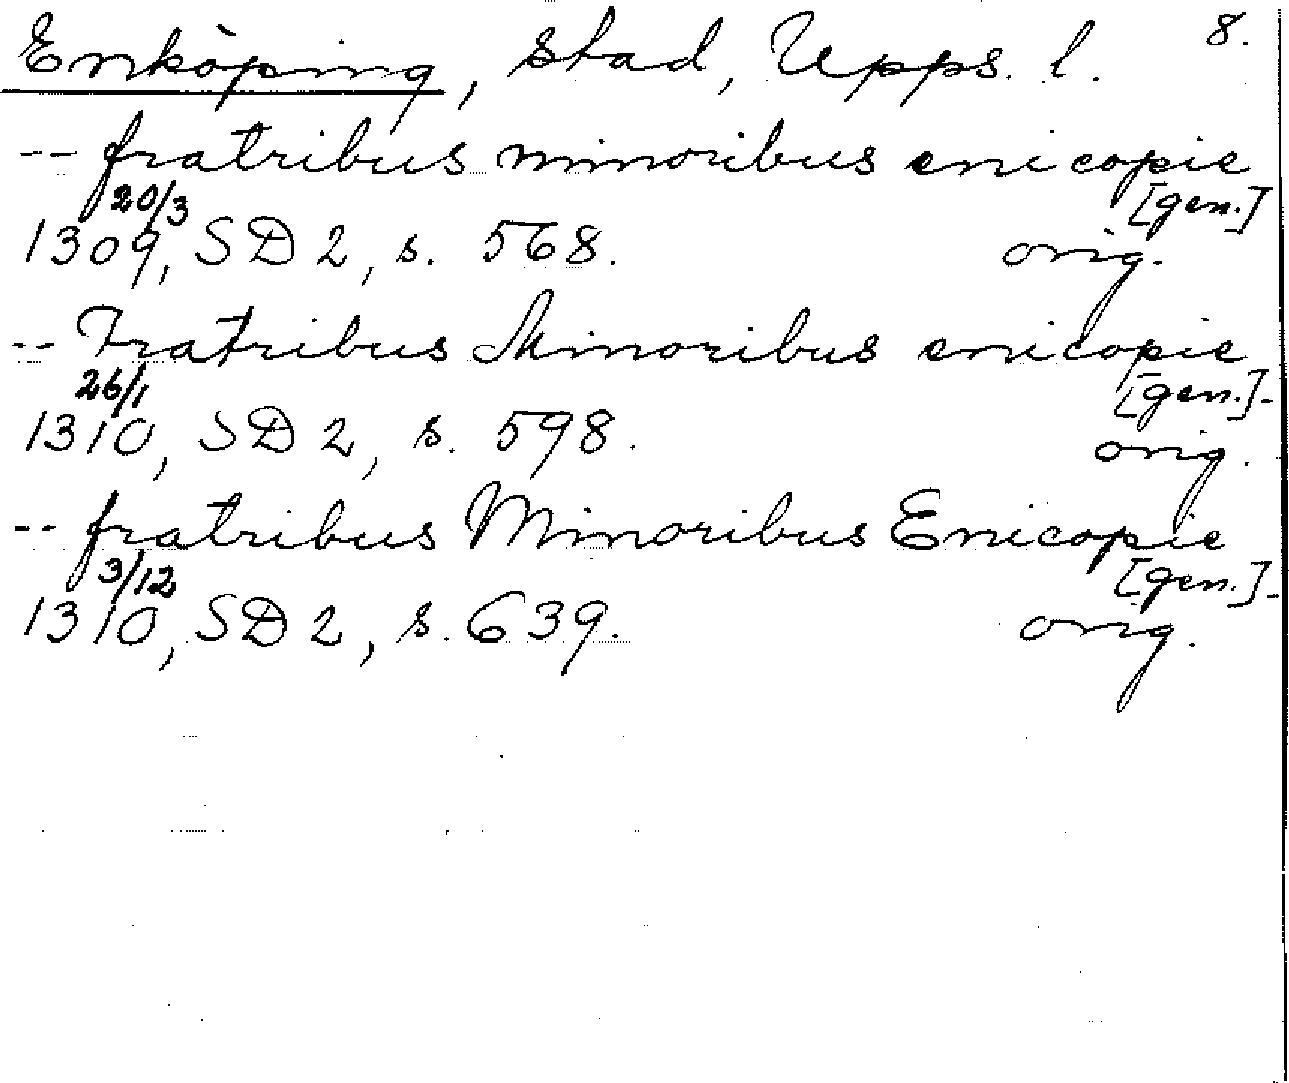 Enköping, stad, Upps. l. 8.
-- fratribus minoribus enicopie
[gen.]
20/3
1309, SD 2, s. 568. orig.
-- Fratribus Minoribus enicopie
[gen.]-
26/1
1310, SD 2, s. 598. orig.
-- fratribus Minoribus Enicopie
[gen.]-
3/12
1310, SD 2, s. 639. orig.